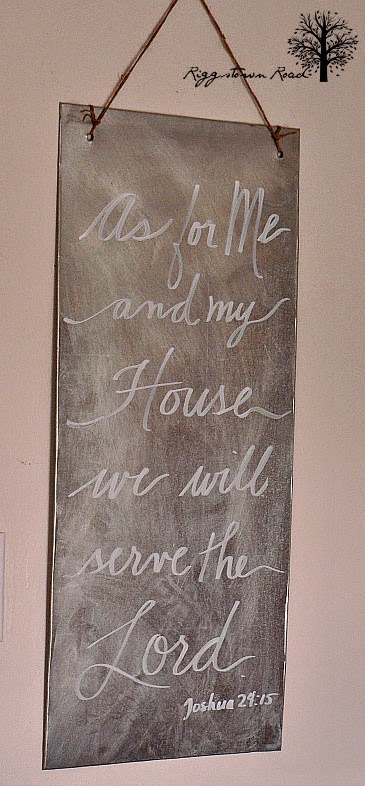 Riggstown Road
As for Me
and my
House
we will
serve the
Lord
Joshua 24:15